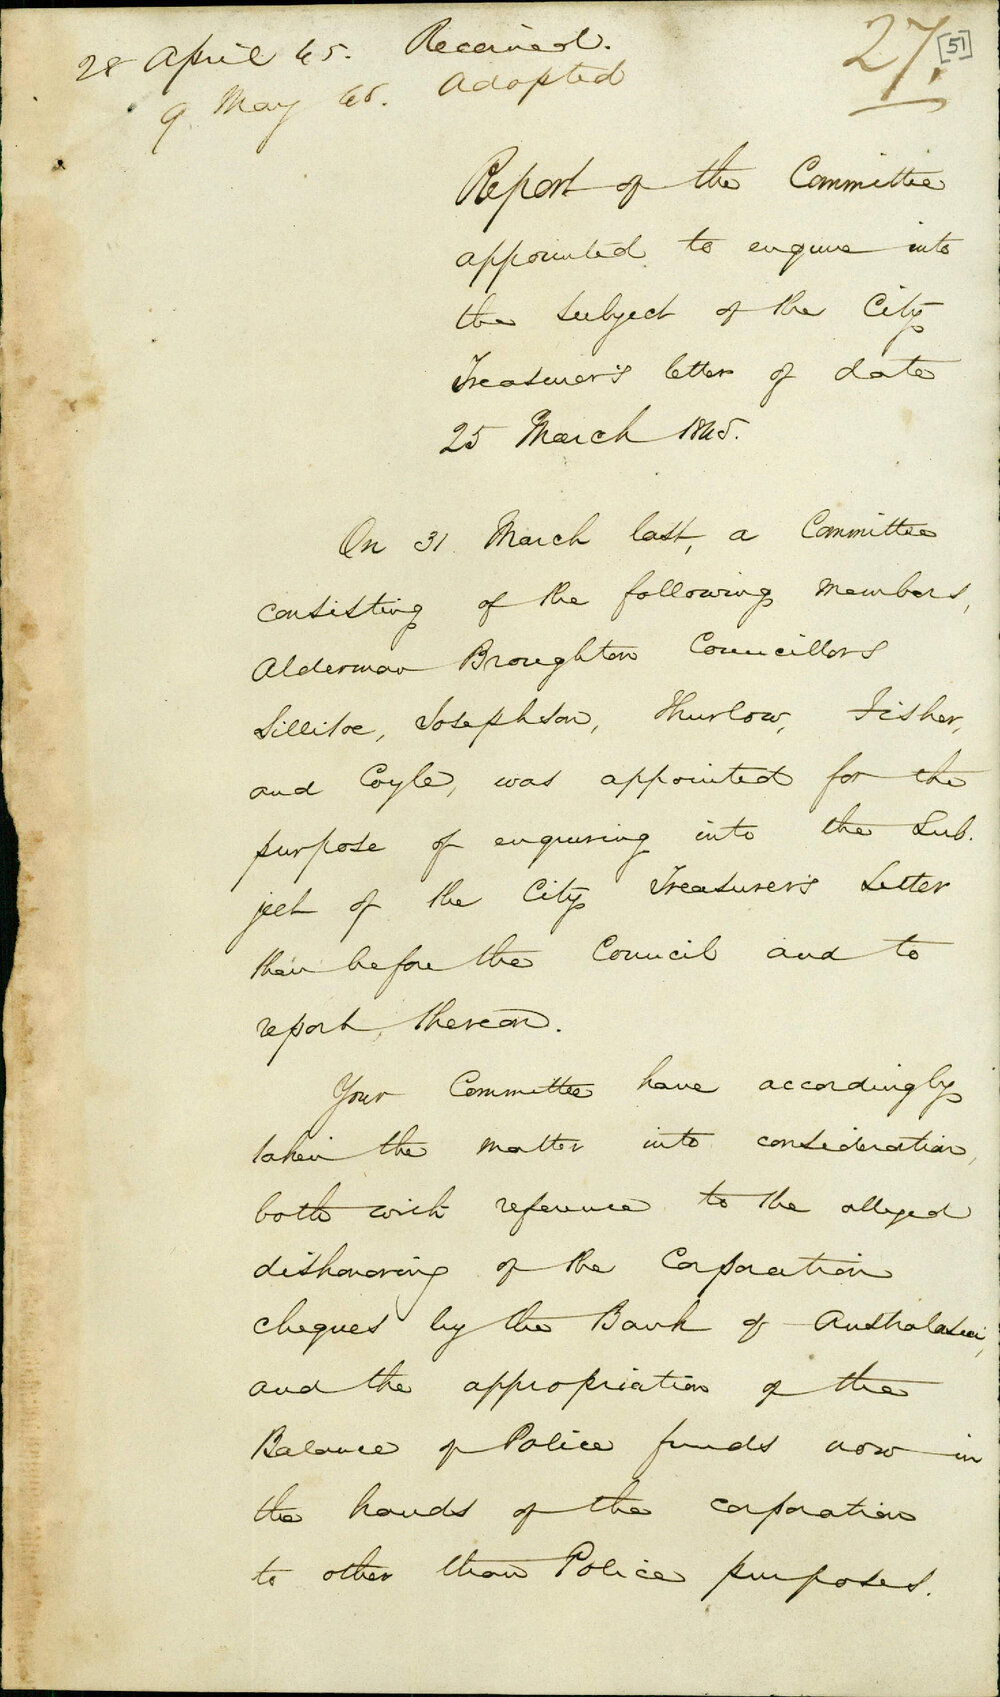 28 April 45. Received.
9 May 45. Adopted
27. [51]
Report of the Committee
appointed to enquire into
the subject of the City
Treasurer's letter of date
25 March 1845.
On 31 March last, a Committee
consisting of the following members,
Alderman Broughton Councillors
Sillitoe, Josephson, Thurlow, Fisher,
and Coyle, was appointed for the
purpose of enquiring into the Sub.
ject of the City Treasurer's Letter
then before the Council and to
report thereon.
Your Committee have accordingly
taken the matter into consideration,
both with reference to the alleged
dishonoring of the Corporation
cheques by the Bank of Australasia,
and the appropriation of the
Balance of Police funds now in
the hands of the corporation
to other than Police purposes.